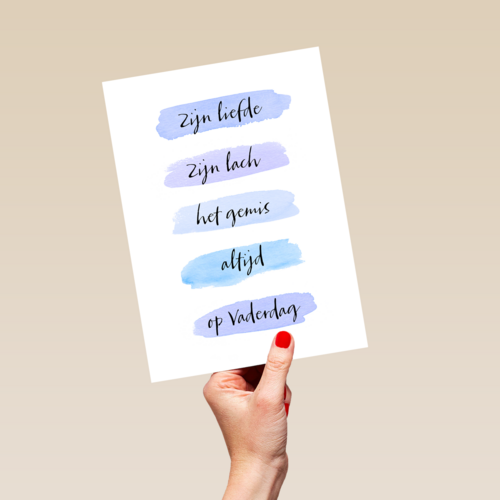 zijn liefde
zijn lach
het gemis
altijd
op Vaderdag